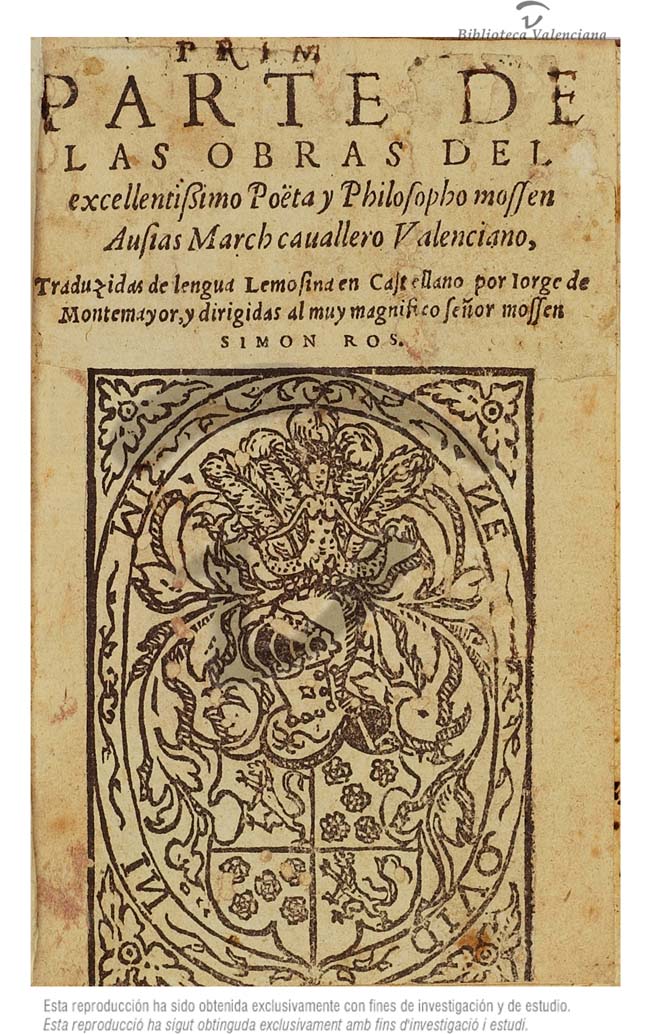 Biblioteca Valenciana
PRIM
PARTE DE
LAS OBRAS DEL
excellentißimo Poëta y Philoſopho moſſen
Auſias March cauallero Valenciano,
Traduzidas de lengua Lemoſina en Caſtellano por Iorge de
Montemayor, y dirigidas al muy magnifico ſeñor moſſen
SIMON ROS.
NI
SIM
NE
QVID
Esta reproducción ha sido obtenida exclusivamente con fines de investigación y de estudio.
Esta reproducció ha sigut obtinguda exclusivament amb fins d'investigació i estudi.